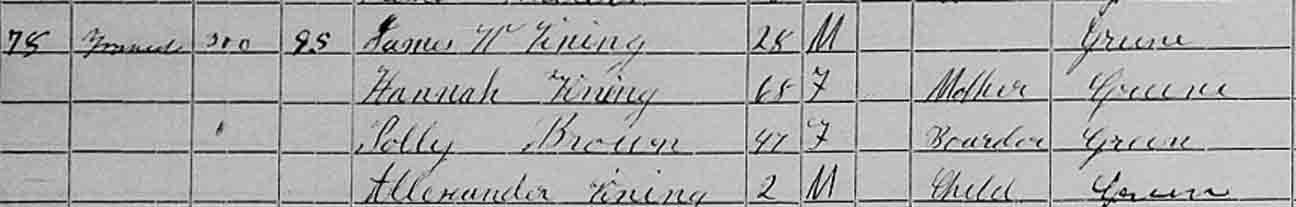 78 Framed 300 95 James W Vining 28 M Greene
Hannah Vining 65 F Mother Greene
Polly Brown 47 F Boarder Green
Allexander Vining 2 M Child Green